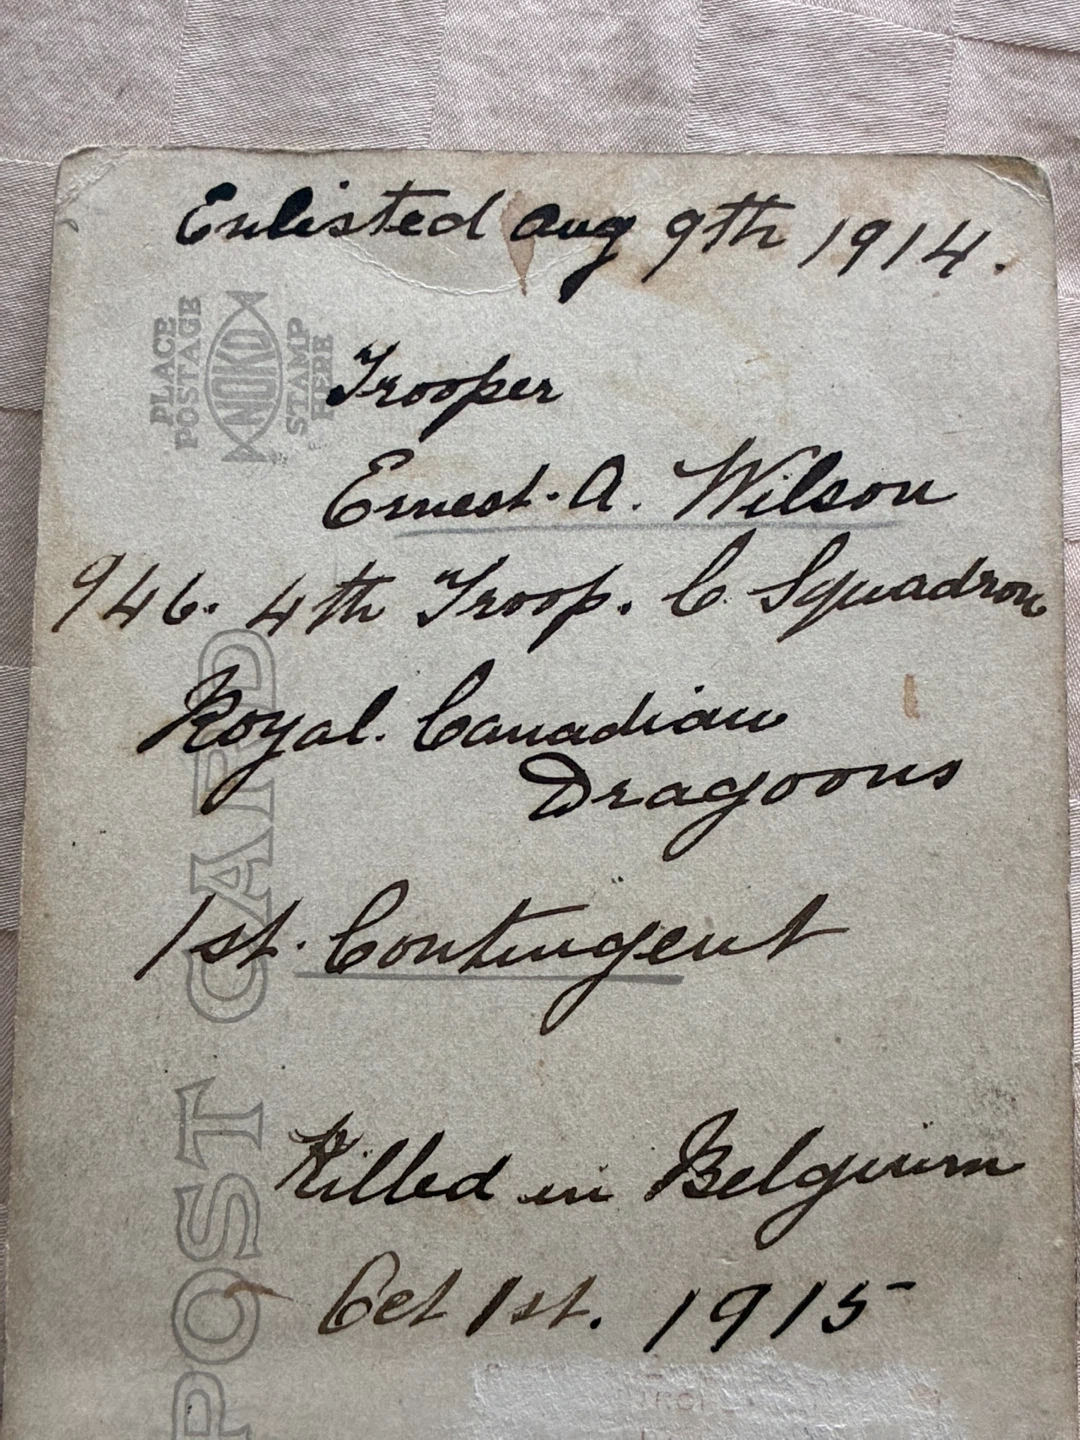 Enlisted Aug 9th 1914.
PLACE
POSTAGE
NOKO
STAMP
HERE
Trooper
Ernest. A. Wilson
946. 4th Troop. C. Squadron
Royal. Canadian
Dragoons
1st. Contingent
Killed in Belgium
Oct 1st. 1915
POST CARD